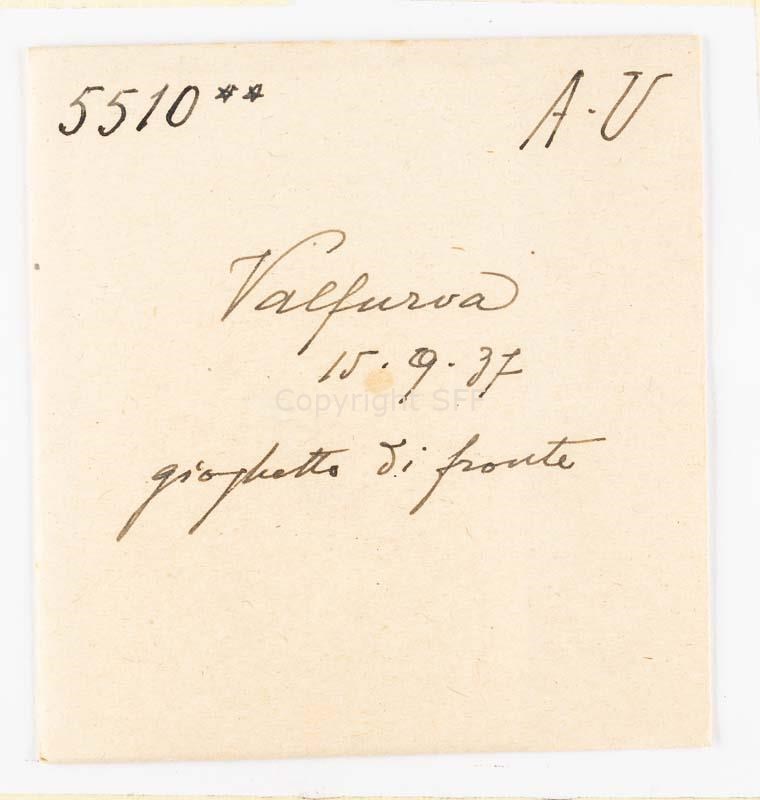 5510** A.V
Valfurva
15.9.37
Copyright SFF
gioghetto di fronte